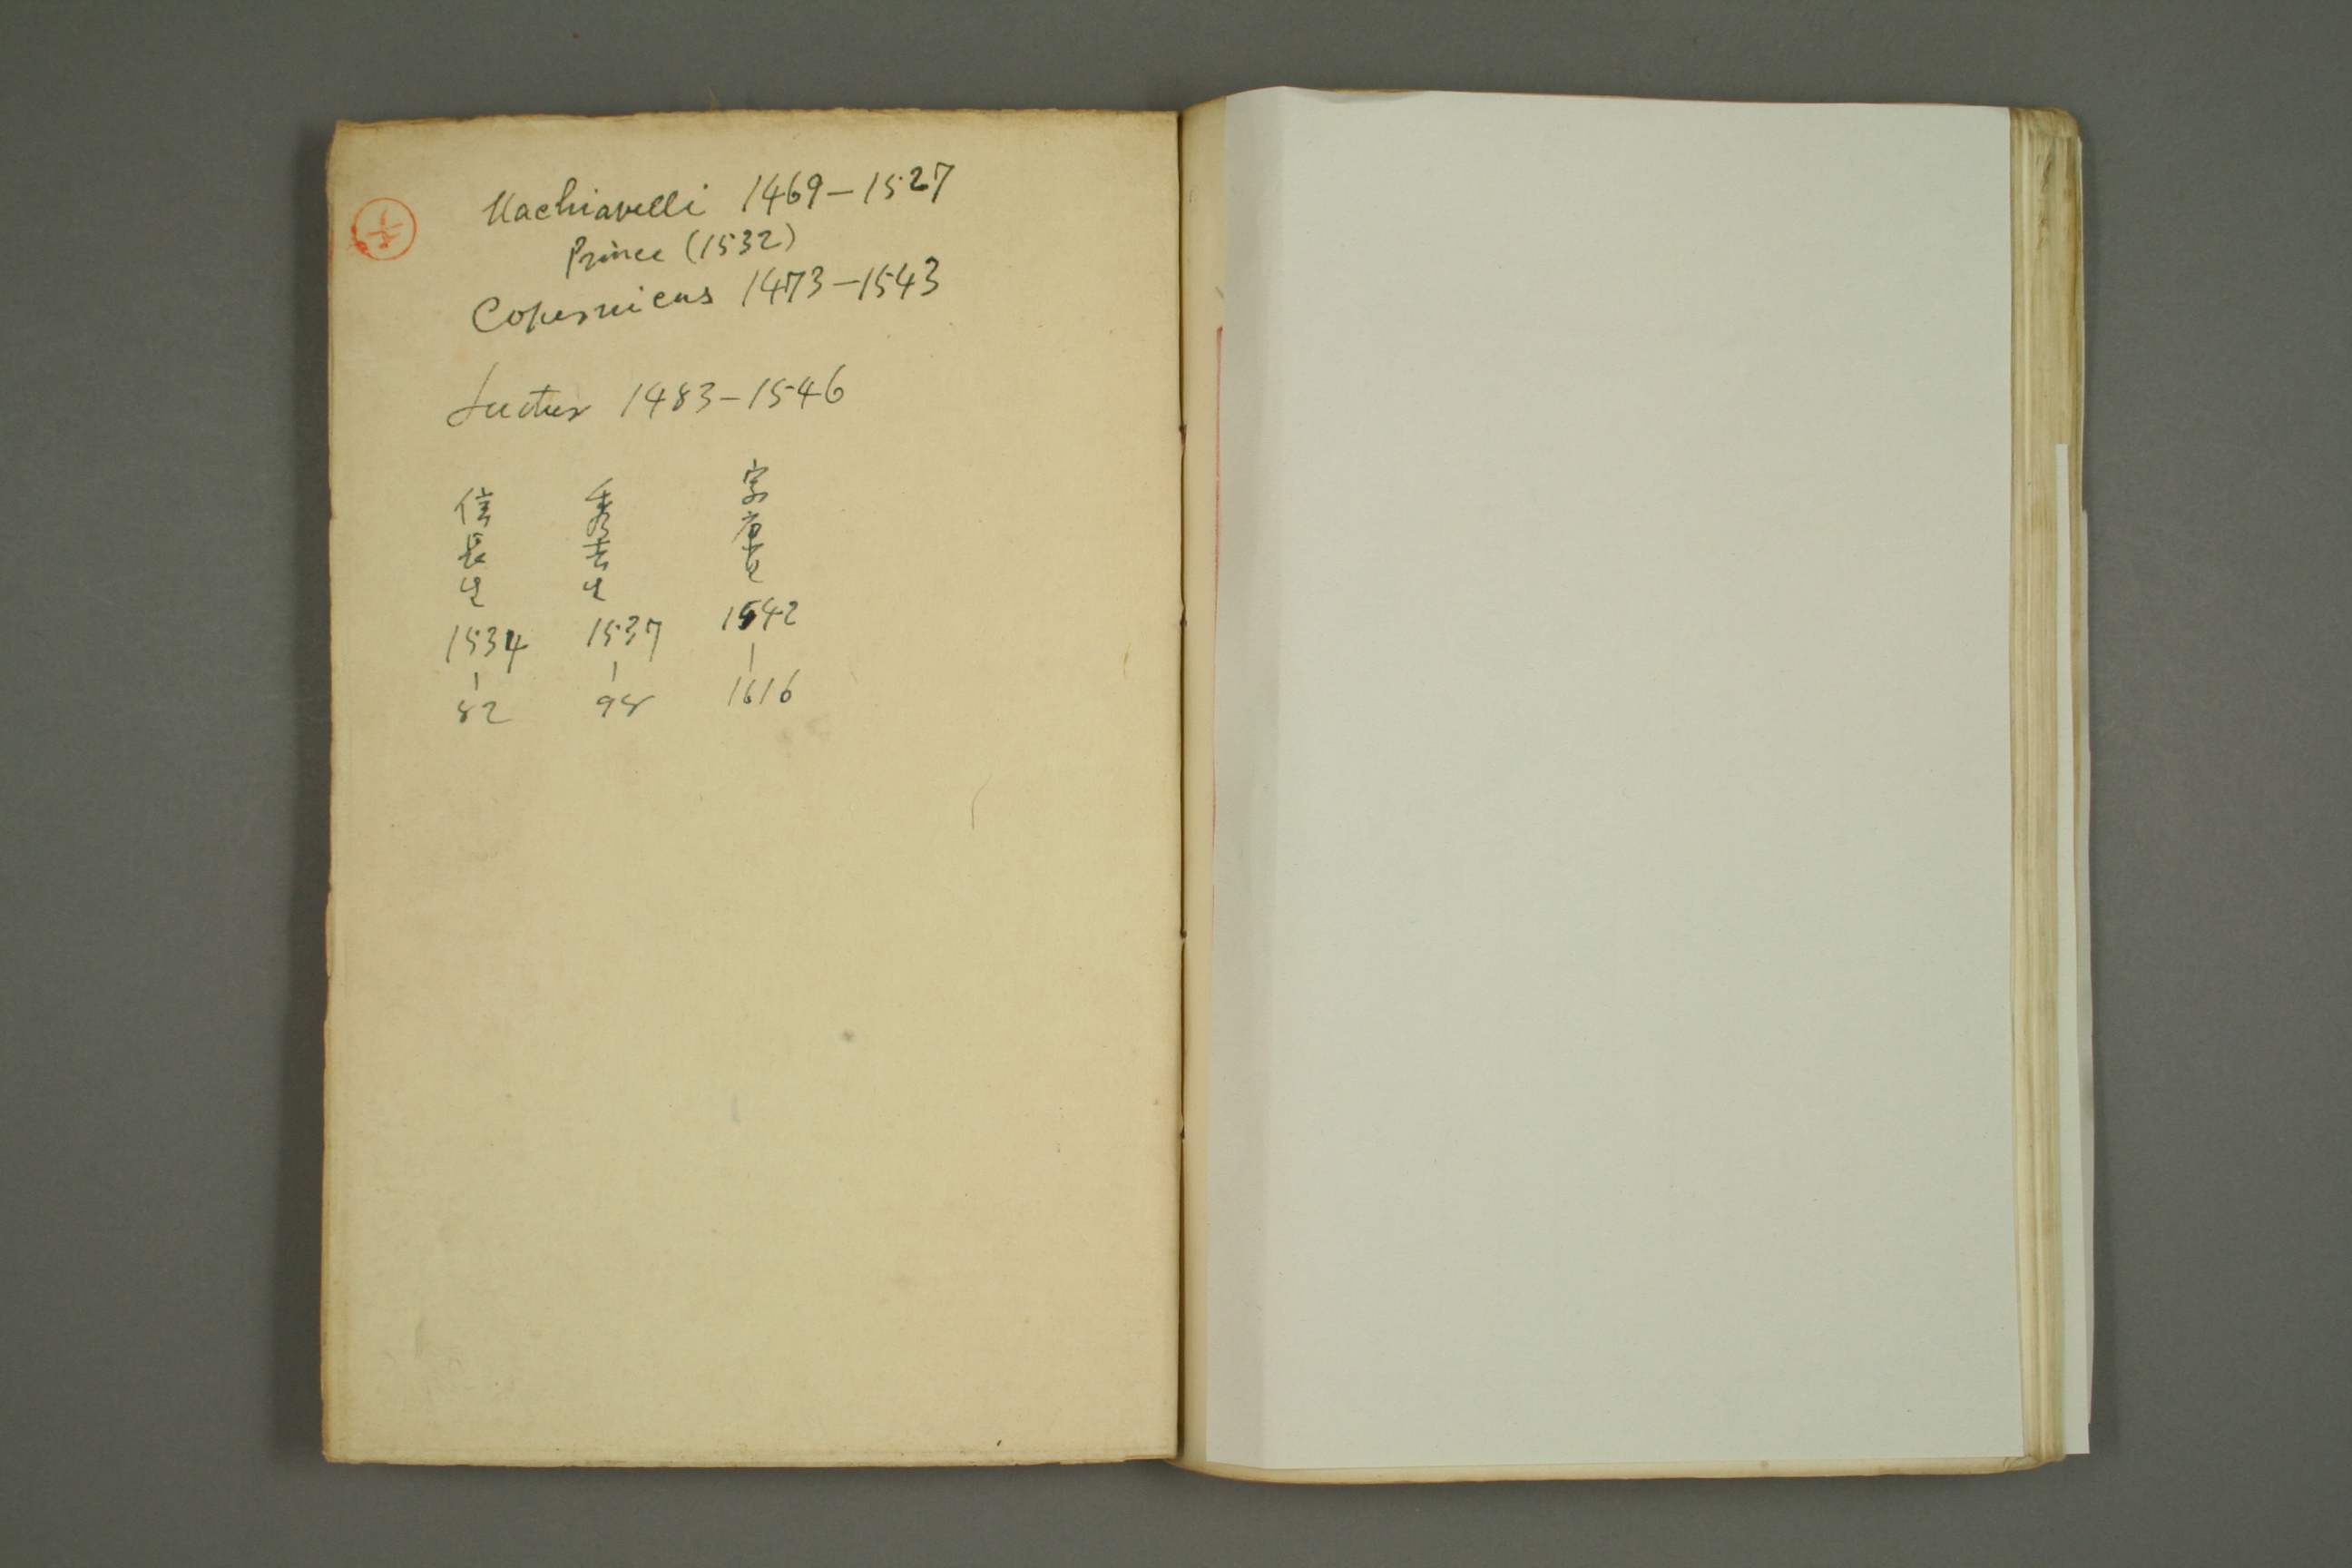 Machiavelli 1469–1527
Prince (1532)
Copernicus 1473–1543
Luther 1483–1546
家康生 1542–1616
秀吉生 1537–98
信長生 1534–82